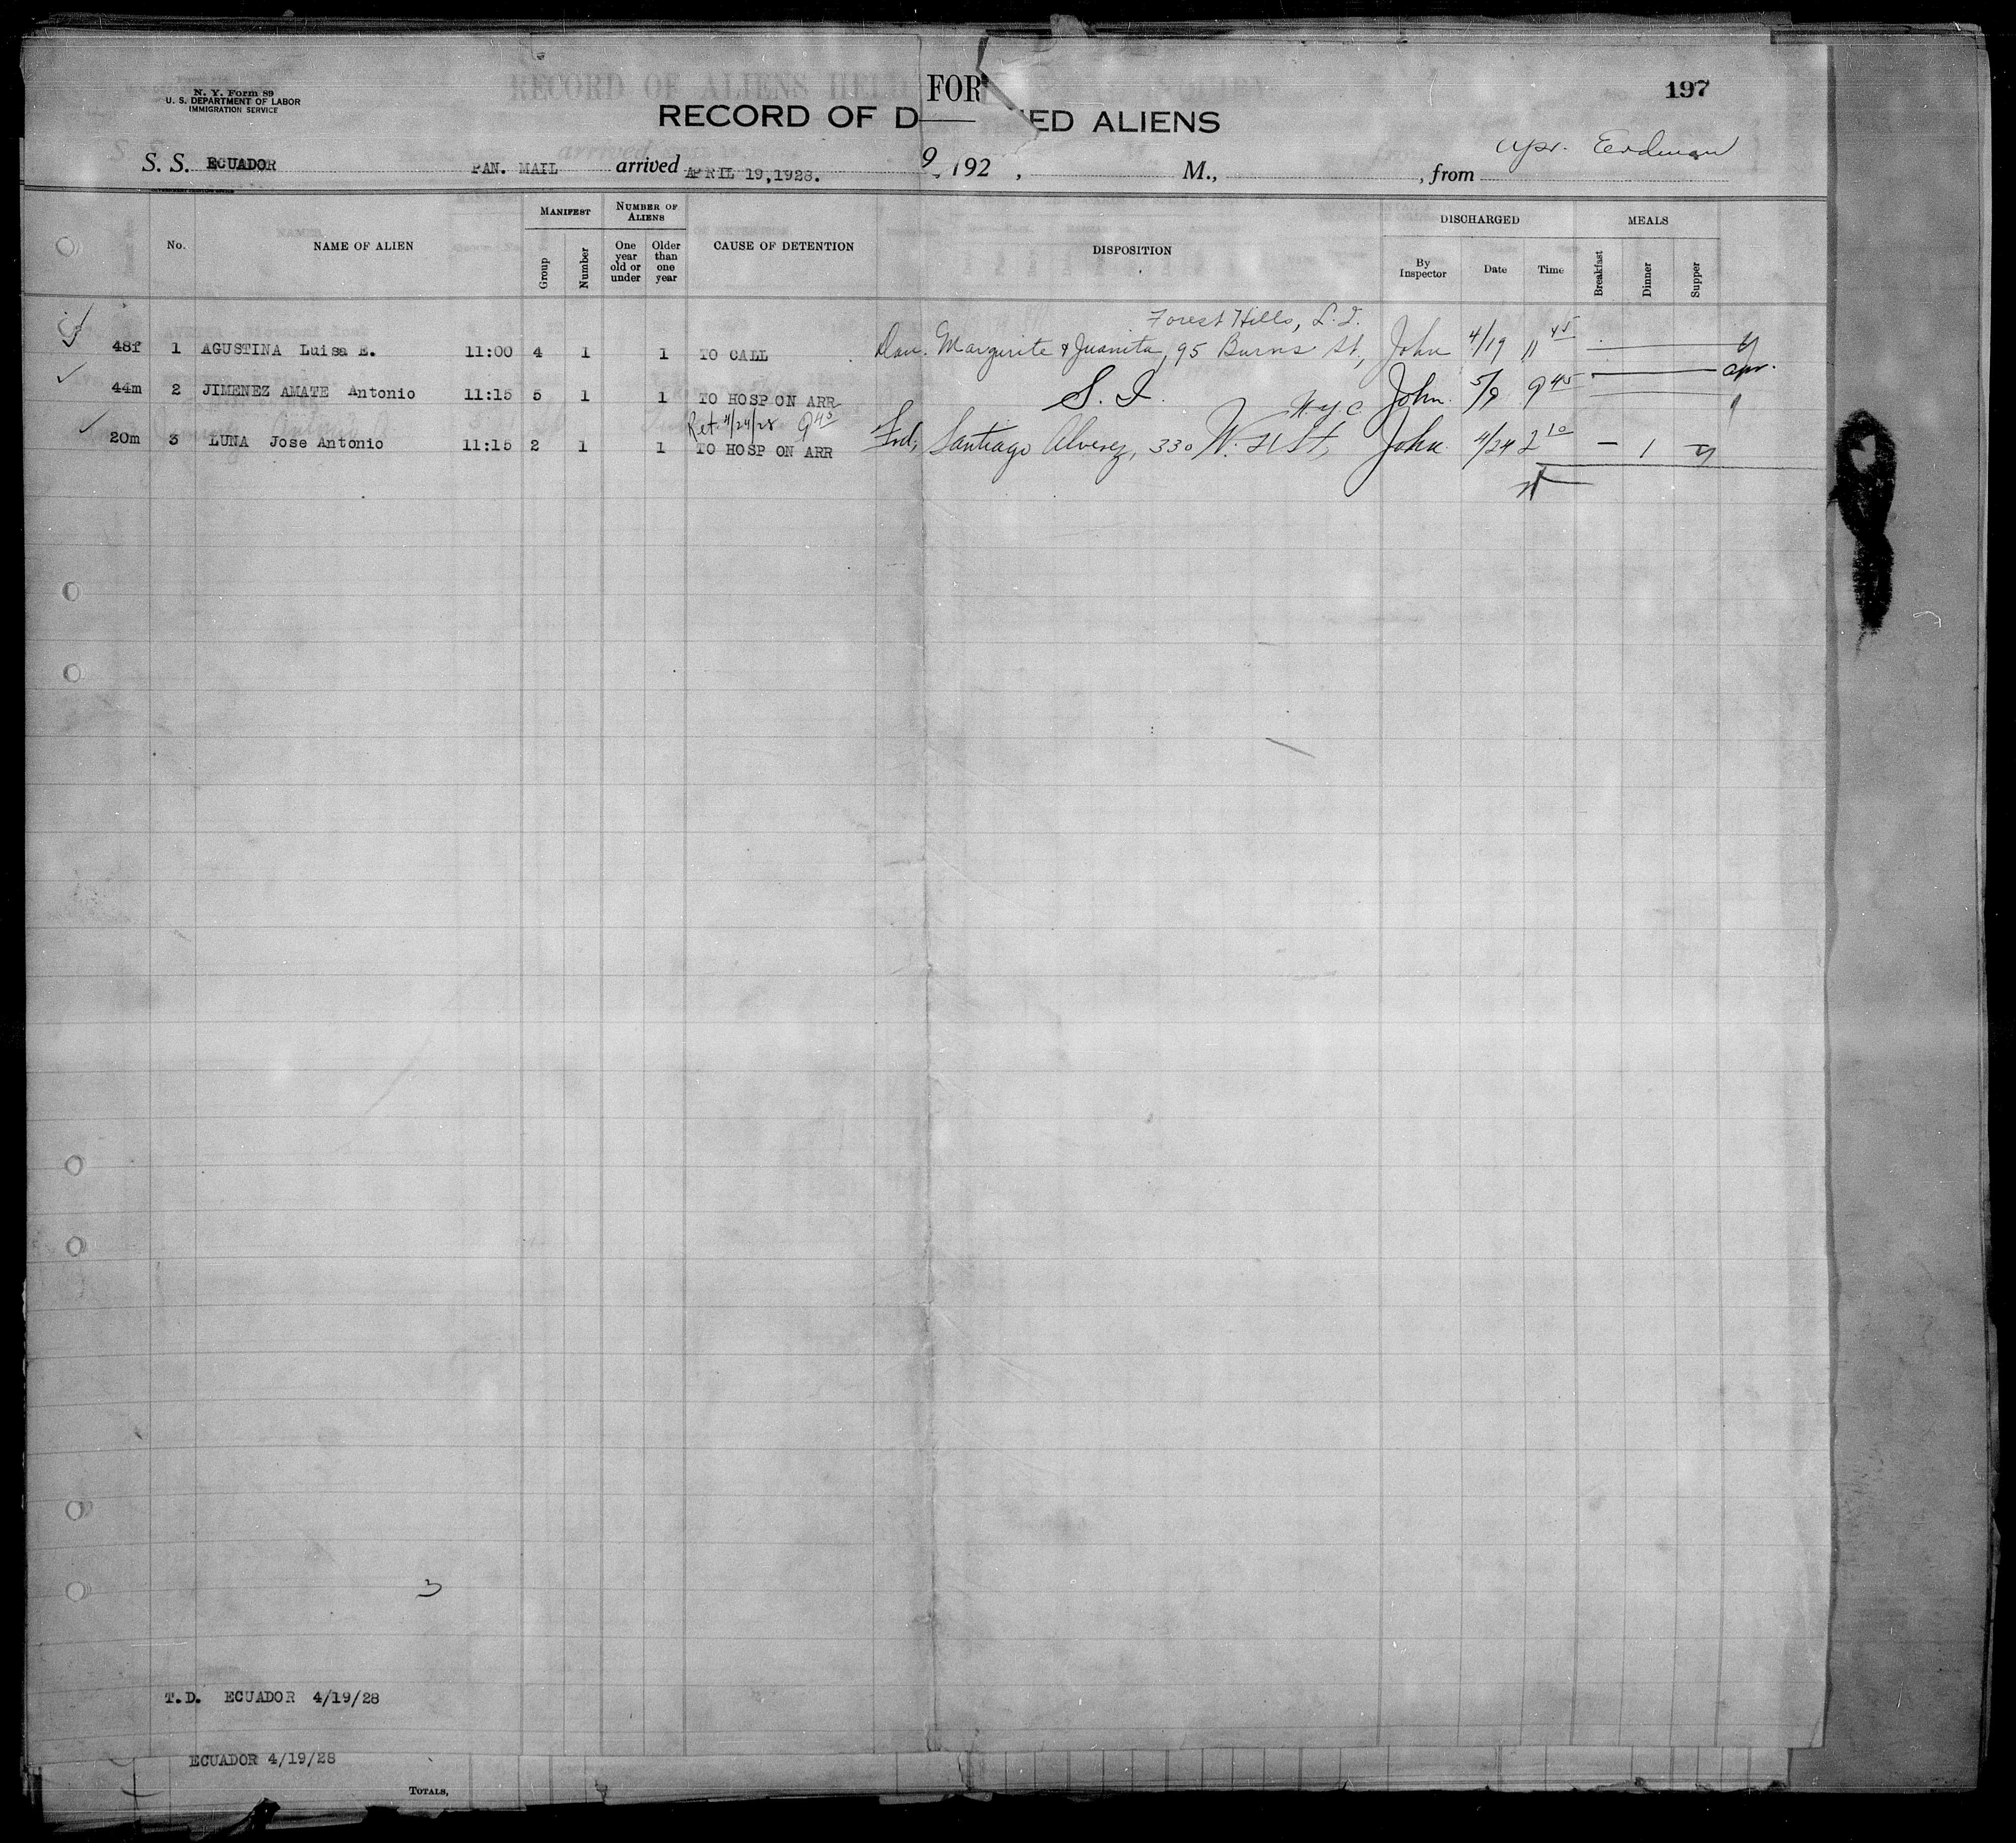 RECORD OF ALIENS HELD FOR INQUIRY
N. Y. Form 89
U. S. DEPARTMENT OF LABOR
IMMIGRATION SERVICE
197
RECORD OF D ED ALIENS
S. S. ECUADOR PAN. MAIL arrived APRIL 19,1928. 9 , 192 , M., , from Erdman
No. NAME OF ALIEN MANIFEST NUMBER OF ALIENS CAUSE OF DETENTION DISPOSITION DISCHARGED MEALS
Group Number One year old or under Older than one year By Inspector Date Time Breakfast Dinner Supper
Forest Hills, L.I.
48f 1 AGUSTINA Luisa E. 11:00 4 1 1 TO CALL Dau. Margurite & Juanita, 95 Burns St., John 4/19 11 45
44m 2 JIMENEZ AMATE Antonio 11:15 5 1 1 TO HOSP ON ARR S. I. John. 5/9 9 45
Ret. 4/24/28 9 45 N Y C
20m 3 LUNA Jose Antonio 11:15 2 1 1 TO HOSP ON ARR Frd, Santiago Alverez, 330 W. St, John 4/24 2 10 — 1
3
T.D. ECUADOR 4/19/28
ECUADOR 4/19/28
TOTALS,